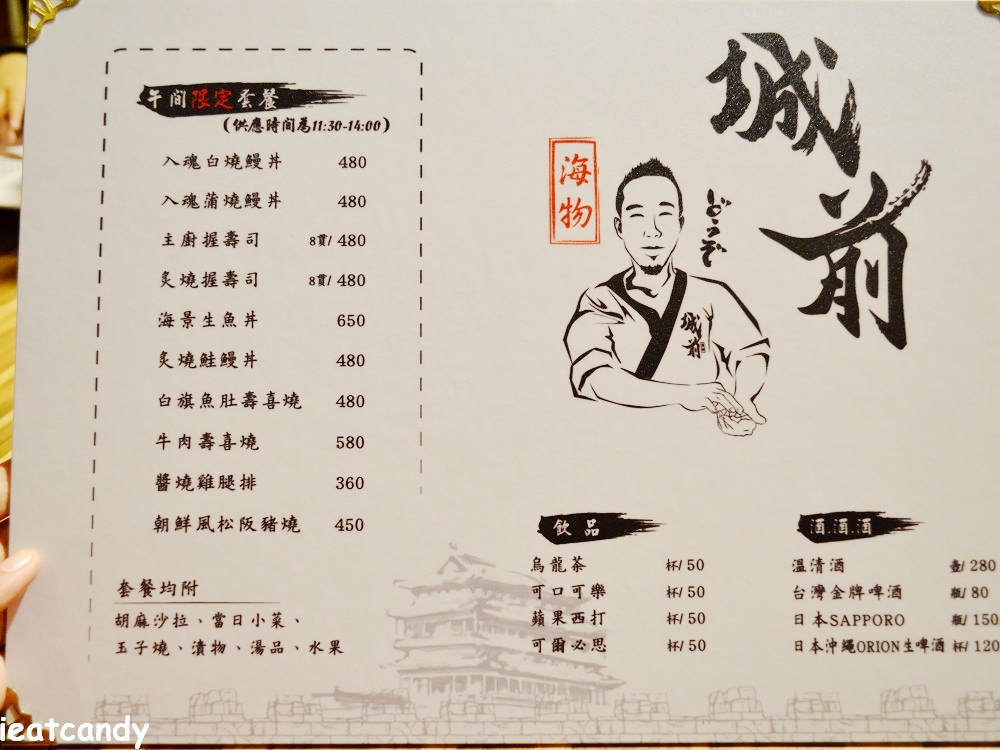 午間限定套餐
(供應時間為11:30-14:00)
入魂白燒鰻丼 480
入魂蒲燒鰻丼 480
主廚握壽司 8貫/ 480
炙燒握壽司 8貫/ 480
海景生魚丼 650
炙燒鮭鰻丼 480
白旗魚肚壽喜燒 480
牛肉壽喜燒 580
醬燒雞腿排 360
朝鮮風松阪豬燒 450
套餐均附
胡麻沙拉、當日小菜、
玉子燒、漬物、湯品、水果
城前
海物
どうぞ
城前
飲品
烏龍茶 杯/ 50
可口可樂 杯/ 50
蘋果西打 杯/ 50
可爾必思 杯/ 50
酒.酒.酒
溫清酒 壺/ 280
台灣金牌啤酒 瓶/ 80
日本SAPPORO 瓶/ 150
日本沖繩ORION生啤酒 杯/ 120
ieatcandy